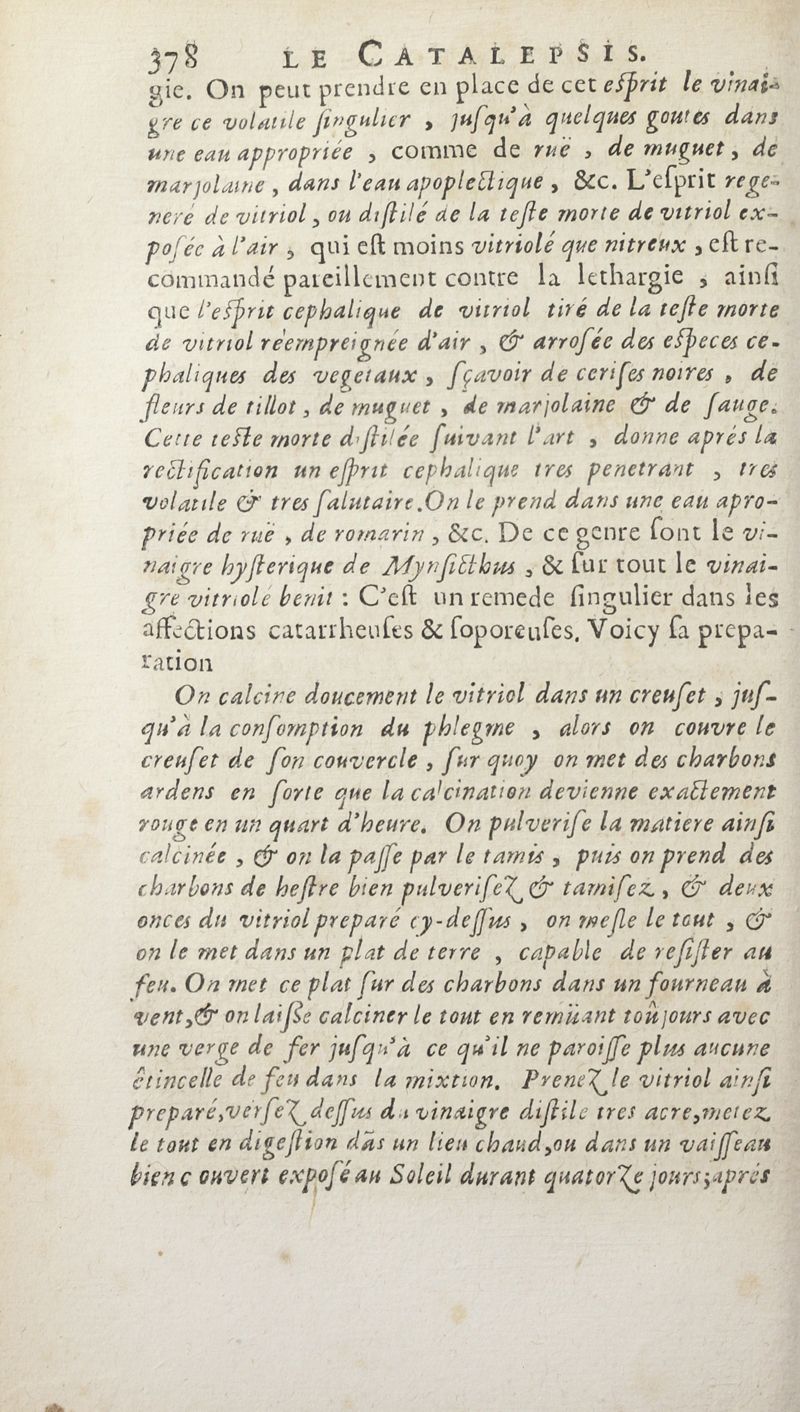 378 LE CATALEPSIS.
gie. On peut prendre en place de cet eſprit le vinai-
gre ce volatile ſingulier, juſqu'à quelques goutes dans
une eau appropriée, comme de ruë, de muguet, de
marjolaine, dans l'eau apoplectique, &c. L'eſprit rege-
neré de vitriol, ou diſtilé de la teſte morte de vitriol ex-
poſée à l'air, qui eſt moins vitriolé que nitreux, eſt re-
commandé pareillement contre la lethargie, ainſi
que l'eſprit cephalique de vitriol tiré de la teſte morte
de vitriol réempreignée d'air, & arroſée des eſpeces ce-
phaliques des vegetaux, ſçavoir de ceriſes noires, de
fleurs de tillot, de muguet, de marjolaine & de ſauge.
Cette teſte morte diſtilée ſuivant l'art, donne aprés la
rectification un eſprit cephalique tres penetrant, tres
volatile & tres ſalutaire. On le prend dans une eau apro-
priée de ruë, de romarin, &c. De ce genre ſont le vi-
naigre hyſterique de Mynſicthus, & ſur tout le vinai-
gre vitriolé benit : C'eſt un remede ſingulier dans les
affections catarrheuſes & ſoporeuſes. Voicy ſa prepa-
ration
On calcine doucement le vitriol dans un creuſet, juſ-
qu'à la conſomption du phlegme, alors on couvre le
creuſet de ſon couvercle, ſur quoy on met des charbons
ardens en ſorte que la calcination devienne exactement
rouge en un quart d'heure. On pulveriſe la matiere ainſi
calcinée, & on la paſſe par le tamis, puis on prend des
charbons de heſtre bien pulveriſez & tamiſez, & deux
onces du vitriol preparé cy-deſſus, on meſle le tout, &
on le met dans un plat de terre, capable de reſiſter au
feu. On met ce plat ſur des charbons dans un fourneau à
vent, & on laiſſe calciner le tout en remüant toûjours avec
une verge de fer juſqu'à ce qu'il ne paroiſſe plus aucune
êtincelle de feu dans la mixtion. Prenez le vitriol ainſi
preparé, verſez deſſus du vinaigre diſtilé tres acre, metez
le tout en digeſtion dãs un lieu chaud, ou dans un vaiſſeau
bien couvert expoſé au Soleil durant quatorze jours; aprés